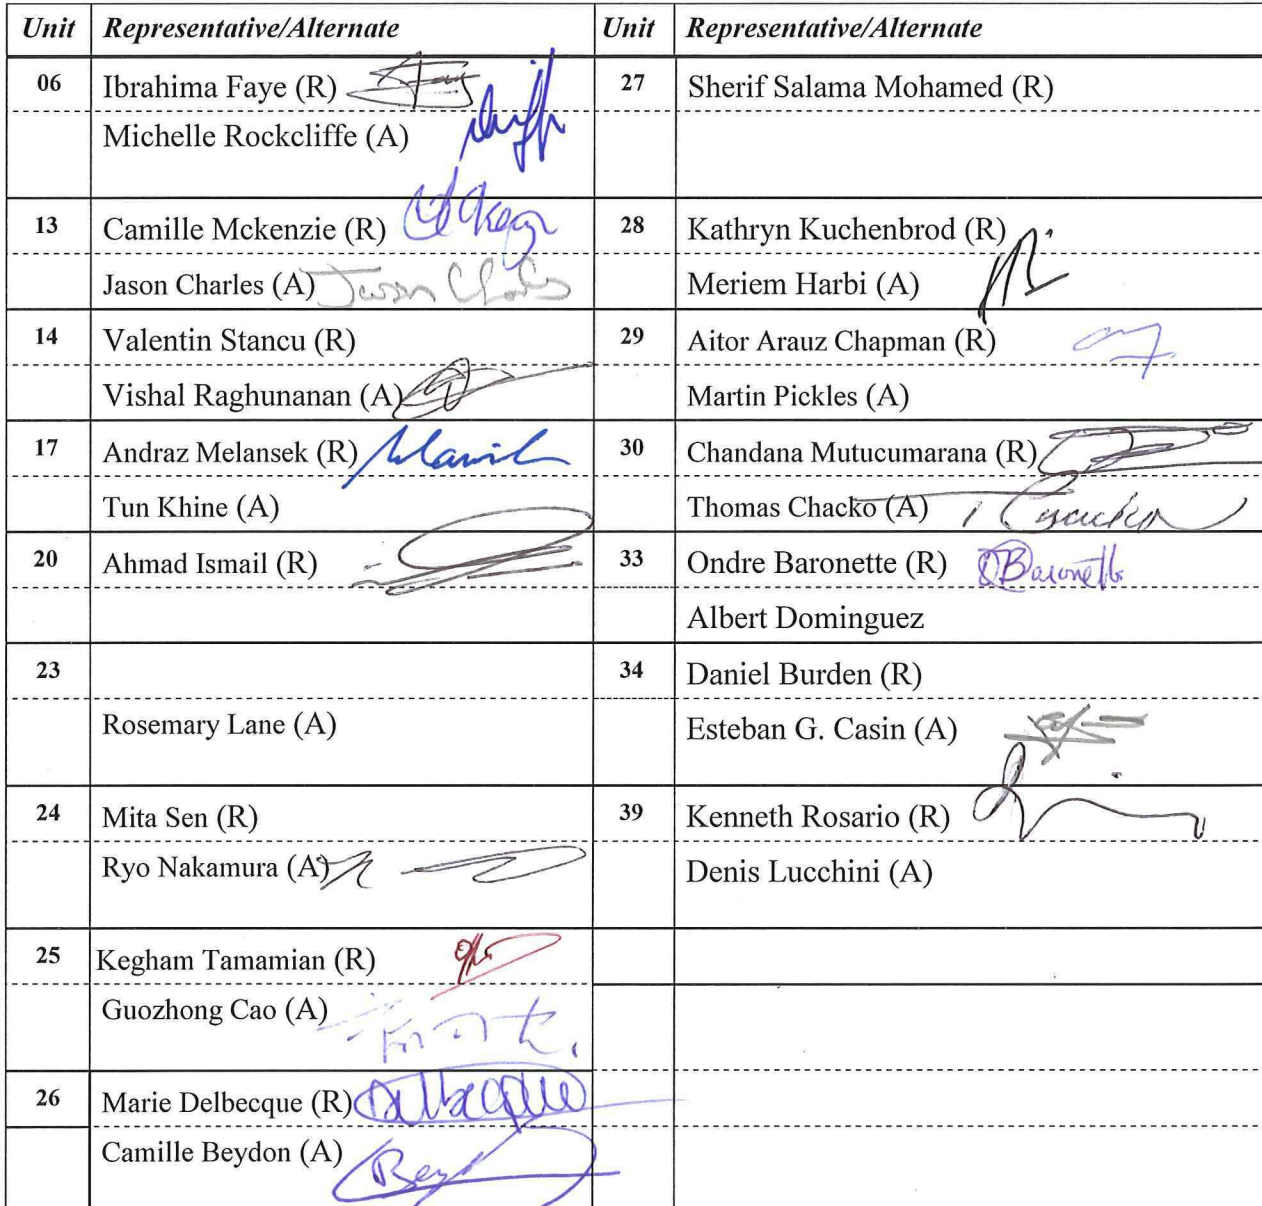 Unit Representative/Alternate Unit Representative/Alternate
06 Ibrahima Faye (R) 27 Sherif Salama Mohamed (R)
Michelle Rockcliffe (A)
13 Camille Mckenzie (R) 28 Kathryn Kuchenbrod (R)
Jason Charles (A) Jason Charles Meriem Harbi (A)
14 Valentin Stancu (R) 29 Aitor Arauz Chapman (R)
Vishal Raghunanan (A) Martin Pickles (A)
17 Andraz Melansek (R) 30 Chandana Mutucumarana (R)
Tun Khine (A) Thomas Chacko (A) T Chacko
20 Ahmad Ismail (R) 33 Ondre Baronette (R) OBaronette
Albert Dominguez
23 34 Daniel Burden (R)
Rosemary Lane (A) Esteban G. Casin (A)
24 Mita Sen (R) 39 Kenneth Rosario (R)
Ryo Nakamura (A) Denis Lucchini (A)
25 Kegham Tamamian (R)
Guozhong Cao (A)
26 Marie Delbecque (R) Delbecque
Camille Beydon (A)